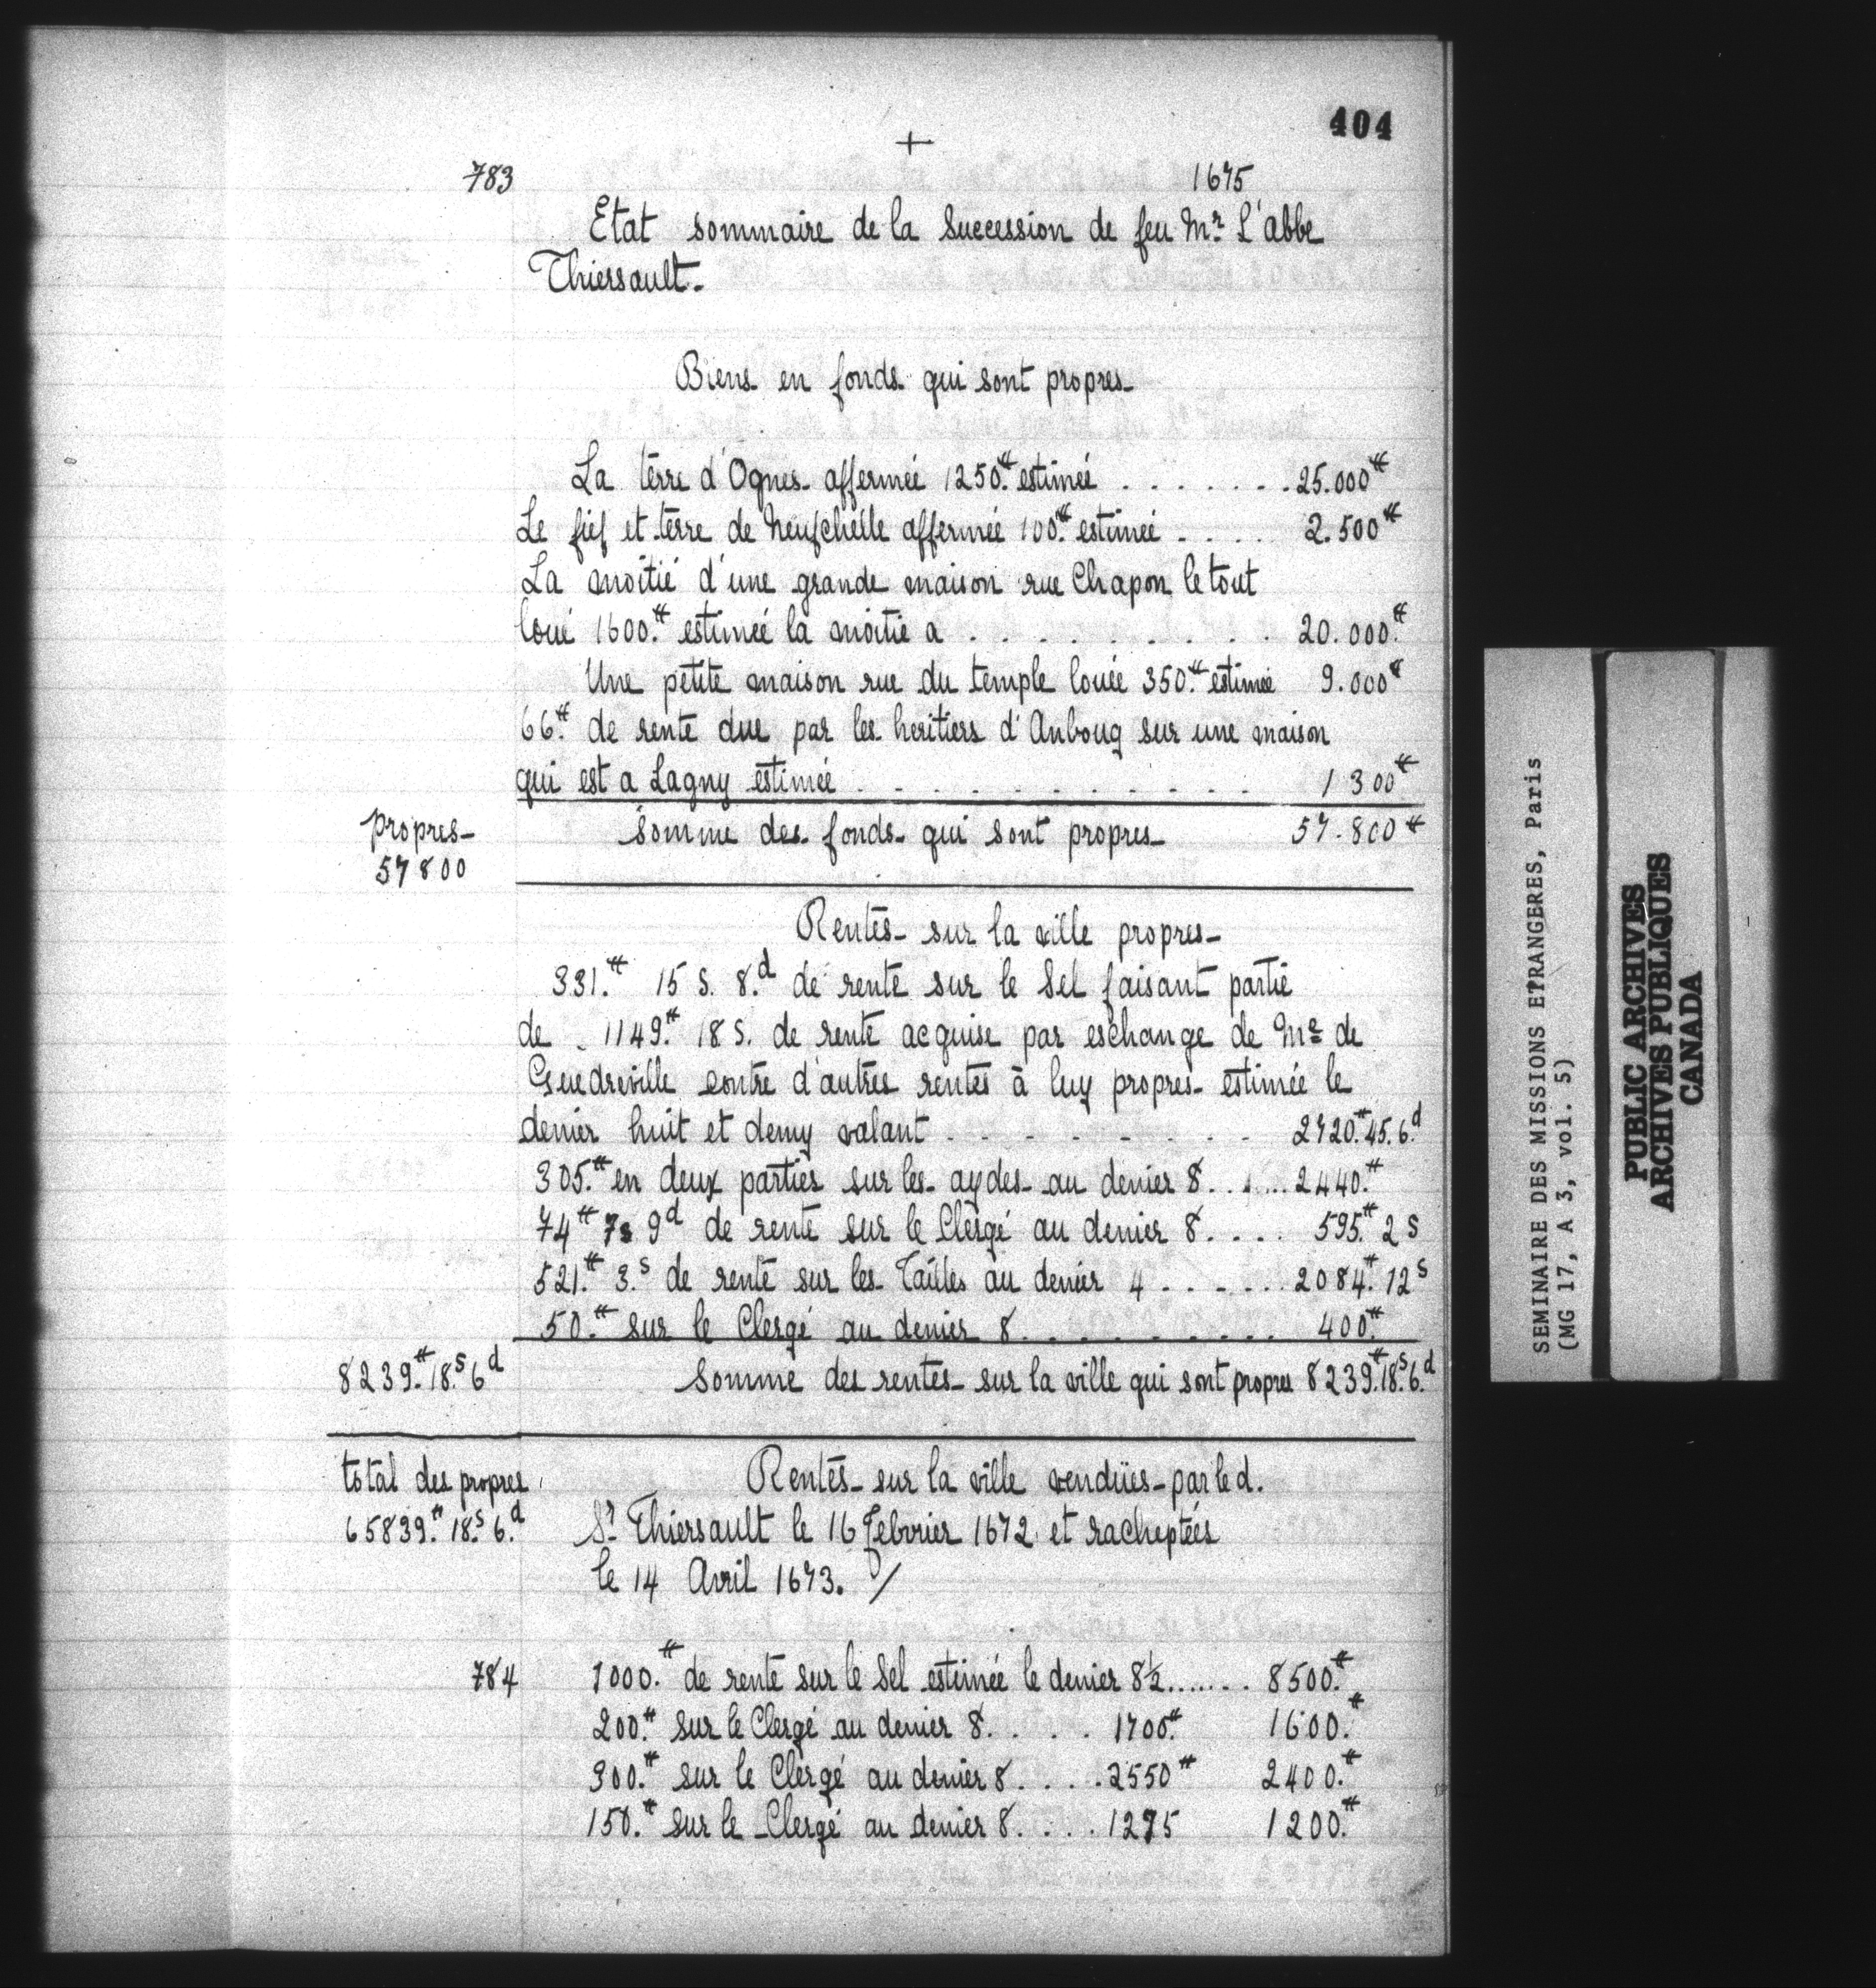 404
+
783
1675
Etat sommaire de la Succession de feu Mr. L'abbe
Thiersault.
Biens en fonds qui sont propres
La terre d'Ognes affermée 1250.# estimée . . . . . . . 25.000#
Le fief et terre de Neufchelle affermée 100.# estimée . . . . 2.500#
La moitié d'une grande maison rue Chapon le tout
loué 1600.# estimée la moitié a . . . . . . . . . 20.000.#
Une petite maison rue du temple louée 350.# estimée 9.000#
66.# de rente due par les heritiers d'Anbouq sur une maison
qui est a Lagny estimée . . . . . . . . . . 1300#
propres
57800
Somme des fonds qui sont propres 57.800#
Rentes sur la ville propres
331.# 15 S. 8.d de rente sur le Sel faisant partie
de 1149.# 18 S. de rente acquise par eschange de Mr de
Guedreville contre d'autres rentes à luy propres estimée le
denier huit et demy valant . . . . . . . 2720.# 4S. 6.d
305.# en deux parties sur les aydes au denier 8 . . . . . 2440.#
74# 7s 9d de rente sur le Clergé au denier 8 . . . . 595.# 2 S
521.# 3.s de rente sur les Tailles au denier 4 . . . . . . 2084.# 12s
50.# sur le Clergé au denier 8 . . . . . . . . . 400.#
8239.# 18.s 6d
Somme des rentes sur la ville qui sont propres 8239.# 18.s 6.d
total des propres
65839.# 18.s 6.d
Rentes sur la ville vendües par led.
Sr. Thiersault le 16 Febvrier 1672 et racheptées
le 14 Avril 1673. /
784
1000.# de rente sur le Sel estimée le denier 8½ . . . . . . . 8500.#
200.# sur le Clergé au denier 8 . . . . . 1700.# 1600.#
300.# sur le Clergé au denier 8 . . . . 2550# 2400.#
150.# sur le Clergé au denier 8 . . . . 1275 1200.#
SEMINAIRE DES MISSIONS ETRANGERES, Paris
(MG 17, A 3, vol. 5)
PUBLIC ARCHIVES
ARCHIVES PUBLIQUES
CANADA